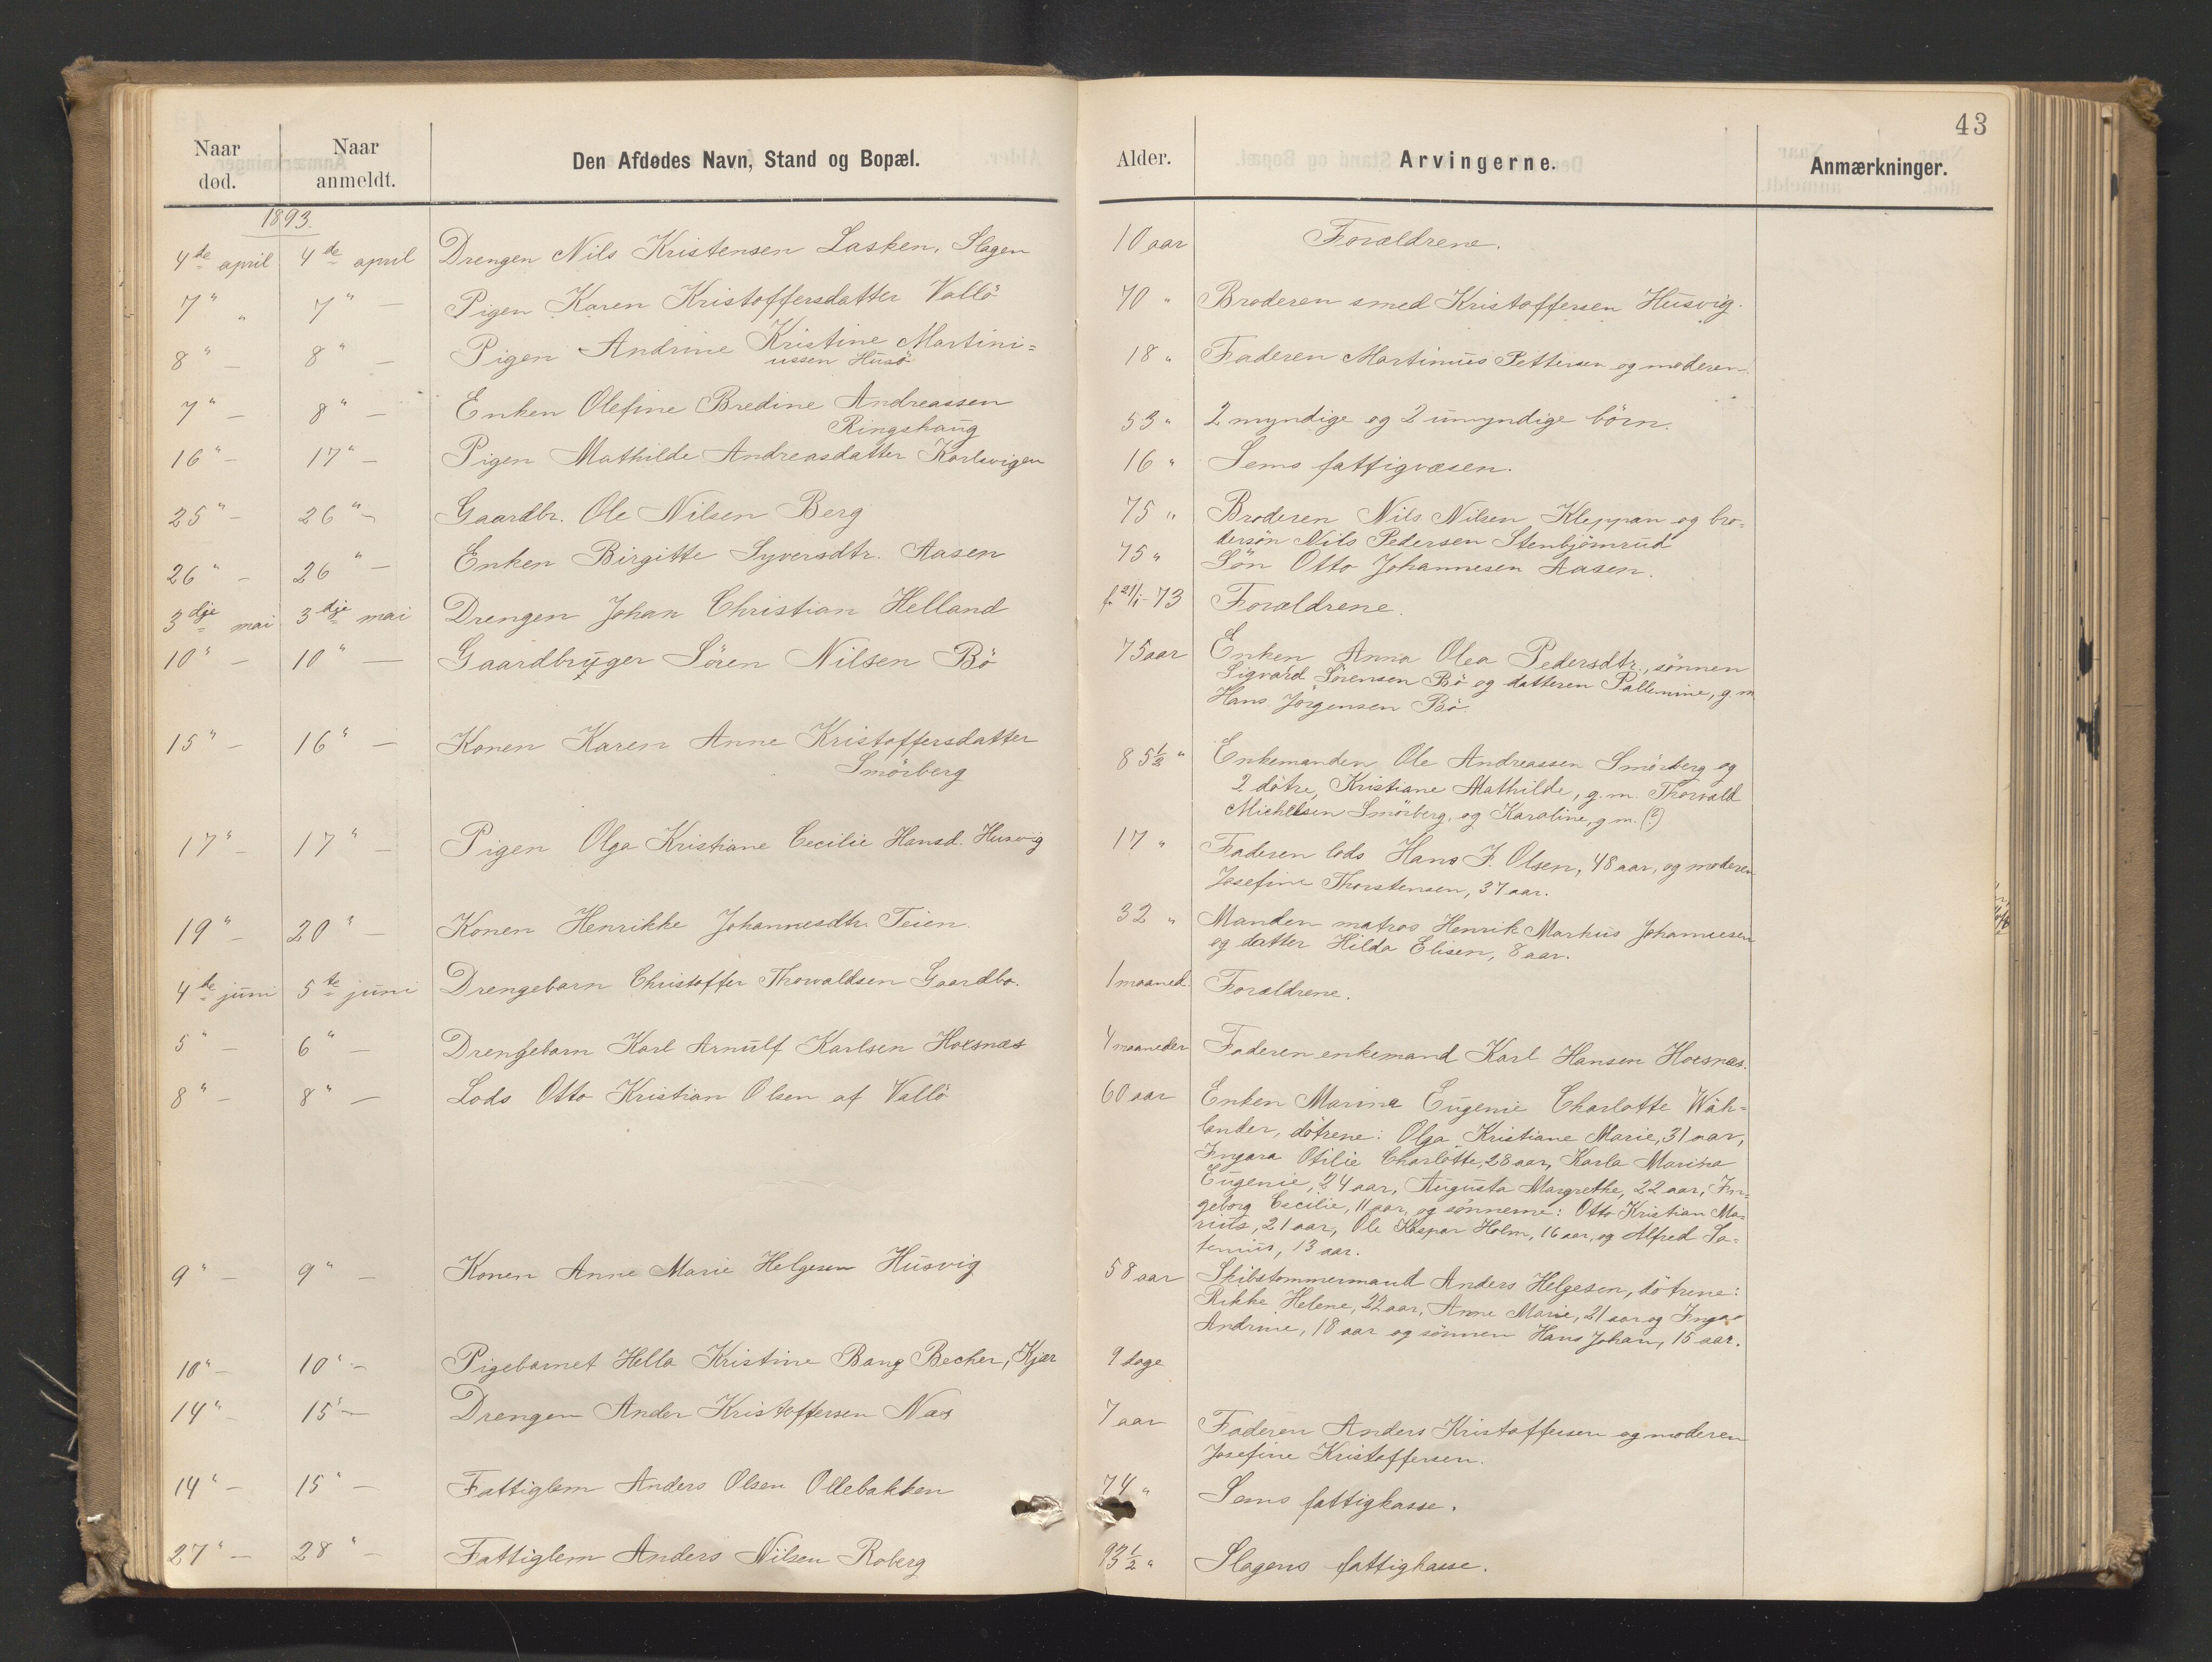 43
Naar død.
Naar anmeldt.
Den Afdødes Navn, Stand og Bopæl.
Alder.
Arvingerne.
Anmærkninger.
1893.
4de april 4de april Drengen Nils Kristensen Lasken, Slagen 10 aar Forældrene.
7" " 7" — Pigen Karen Kristoffersdatter Vallö 70 " Broderen smed Kristoffersen Husvig.
8" — 8" — Pigen Andrine Kristine Martini=
ussen Husö 18 " Faderen Martinius Pettersen og moderen.
7" — 8" — Enken Olefine Bredine Andreassen
Ringshaug 53 " 2 myndige og 2 umyndige börn.
16" — 17" — Pigen Mathilde Andreasdatter Karlsvigen 16 " Sems fattigvæsen.
25" — 26" — Gaardbr. Ole Nilsen Berg 75 " Broderen Nils Nilsen Kleppan og bro=
dersön Nils Pedersen Stenbjömrud
26" — 26" — Enken Birgitte Syversdtr. Aasen 75 " Sön Otto Johannesen Aasen.
3dje mai 3dje mai Drengen Johan Christian Helland f. 21/1-73 Forældrene.
10" — 10" — Gaardbruger Sören Nilsen Bö 75 aar Enken Anna Olea Pedersdtr., sönnen
Sigvard Sörensen Bö og datteren Pallemine, g.m.
Hans Jörgensen Bö.
15" — 16" — Konen Karen Anne Kristoffersdatter
Smörberg 85½ " Enkemanden Ole Andreassen Smörberg og
2 dötre, Kristiane Mathilde, g.m. Thorvald
Michelsen Smörberg, og Karoline, g.m. (?)
17" — 17" — Pigen Olga Kristiane Cecilie Hansd. Husvig 17 " Faderen lods Hans J. Olsen, 48 aar, og moderen
Josefine Thorstensen, 37 aar.
19" — 20" — Konen Henrikke Johannesdtr. Teien. 32 " Manden matros Henrik Markus Johannesen
og datter Hilda Elisen, 8 aar.
4de juni 5te juni Drengebarn Christoffer Thorvaldsen Gaardbo. 1 maaned. Forældrene.
5" — 6" — Drengebarn Karl Arnulf Karlsen Hoesnæs 4 maaneder Faderen enkemand Karl Hansen Hoesnæs.
8" — 8" — Lods Otto Kristian Olsen af Vallö 60 aar Enken Marina Eugenie Charlotte Wäh=
lander, dötrene: Olga Kristiane Marie, 31 aar,
Ingara Otilie Charlotte, 28 aar, Karla Marina
Eugenie, 24 aar, Augusta Margrethe, 22 aar, In=
geborg Cecilie, 11 aar, og sönnerne: Otto Kristian Ma=
rius, 21 aar, Ole Kaspar Holm, 16 aar, og Alfred La=
tenius, 13 aar.
9" — 9" — Konen Anne Marie Helgesen Husvig 58 aar Skibstömmermand Anders Helgesen, dötrene:
Rikke Helene, 22 aar, Anne Marie, 21 aar og Inga
Andrine, 18 aar og sönnen Hans Johan, 15 aar.
10" — 10" — Pigebarnet Hella Kristine Bang Becher, Kjær 9 dage
14" — 15" — Drengen Ander Kristoffersen Næs 7 aar Faderen Anders Kristoffersen og moderen
Josefine Kristoffersen.
14" — 15" — Fattiglem Anders Olsen Ollebakken 74 " Sems fattigkasse.
27" — 28" — Fattiglem Anders Nilsen Roberg 93½ " Slagens fattigkasse.